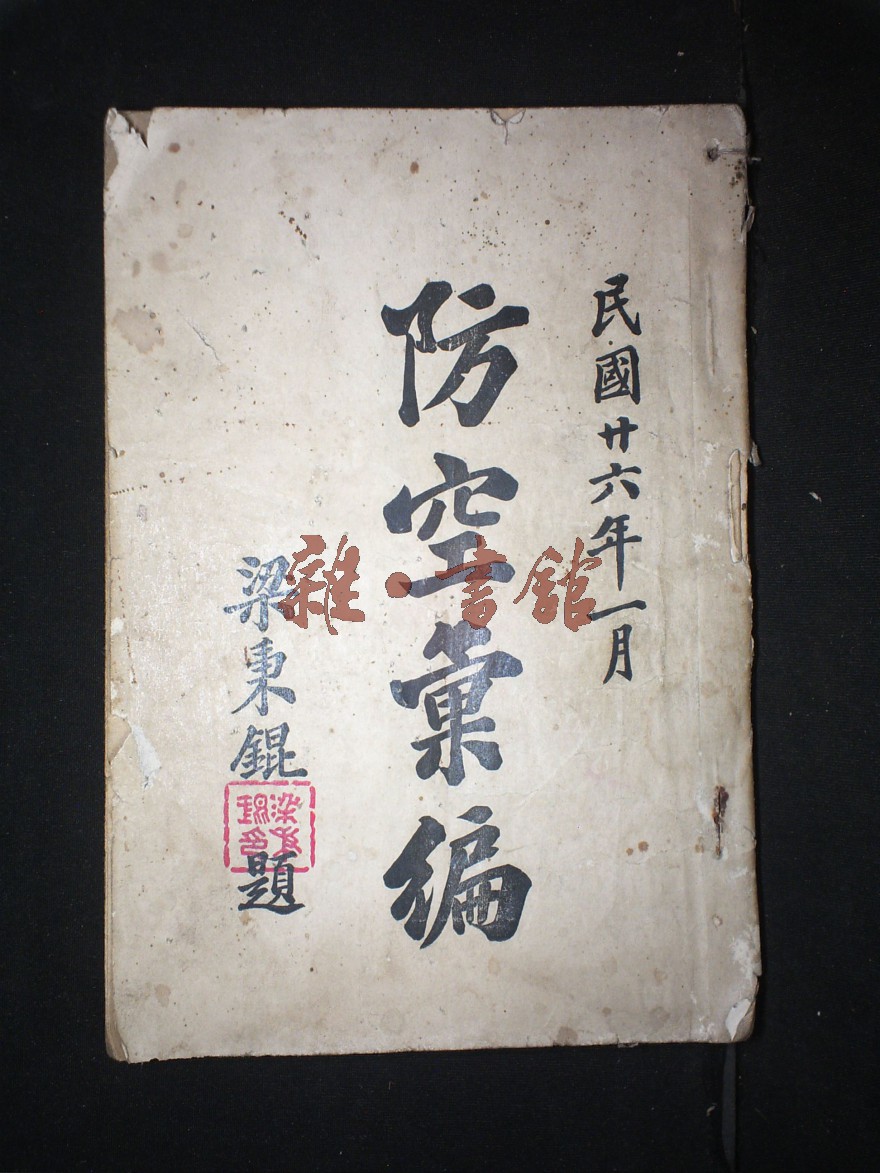 民國廿六年一月
防空彙編
梁秉錕題
雜·書館